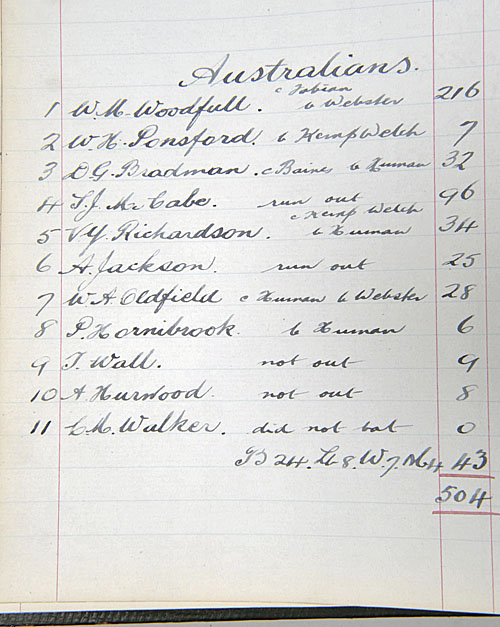 Australians.
1 W.M. Woodfull. c Fabian b Webster 216
2 W.H. Ponsford. b Kemp Welch 7
3 D.G. Bradman. c Baines b Human 32
4 S.J. McCabe. run out 96
5 V.Y. Richardson. c Kemp Welch b Human 34
6 A. Jackson. run out 25
7 W A Oldfield c Human b Webster 28
8 P. Hornibrook. b Human 6
9 T. Wall. not out 9
10 A Hurwood. not out 8
11 C.M. Walker. did not bat 0
B 24. Lb 8. W. 7 Nb 4 43
504